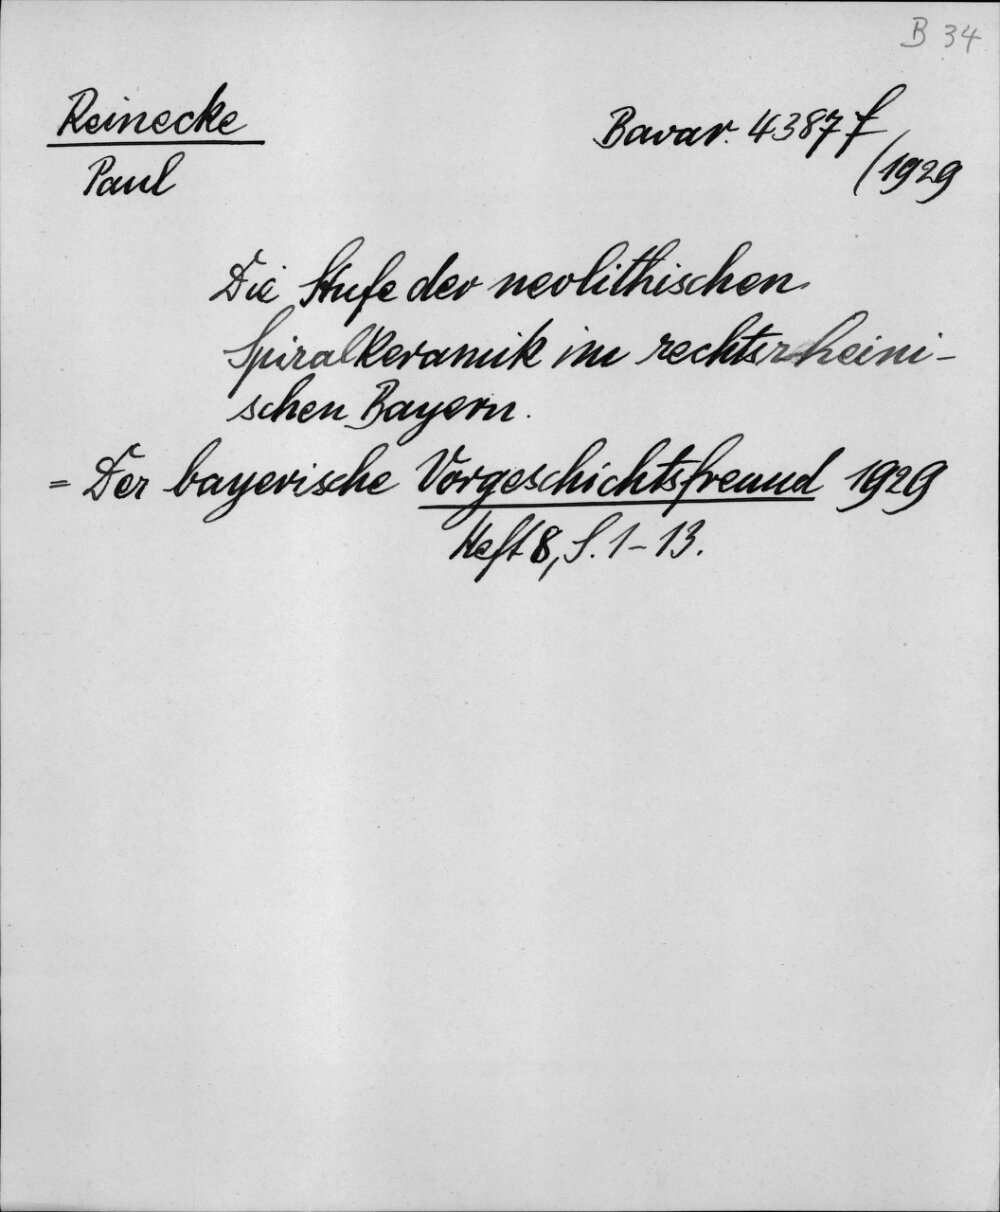 B 34
Reinecke
Bavar. 4387 f
/1929
Paul
Die Stufe der neolithischen
Spiralkeramik im rechtsrheini-
schen Bayern.
= Der bayerische Vorgeschichtsfreund 1929
Heft 8, S. 1-13.